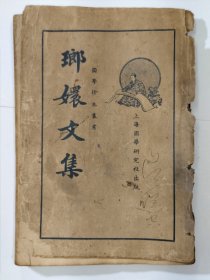 瑯嬛文集
國學珍本叢書
上海國學研究社出版